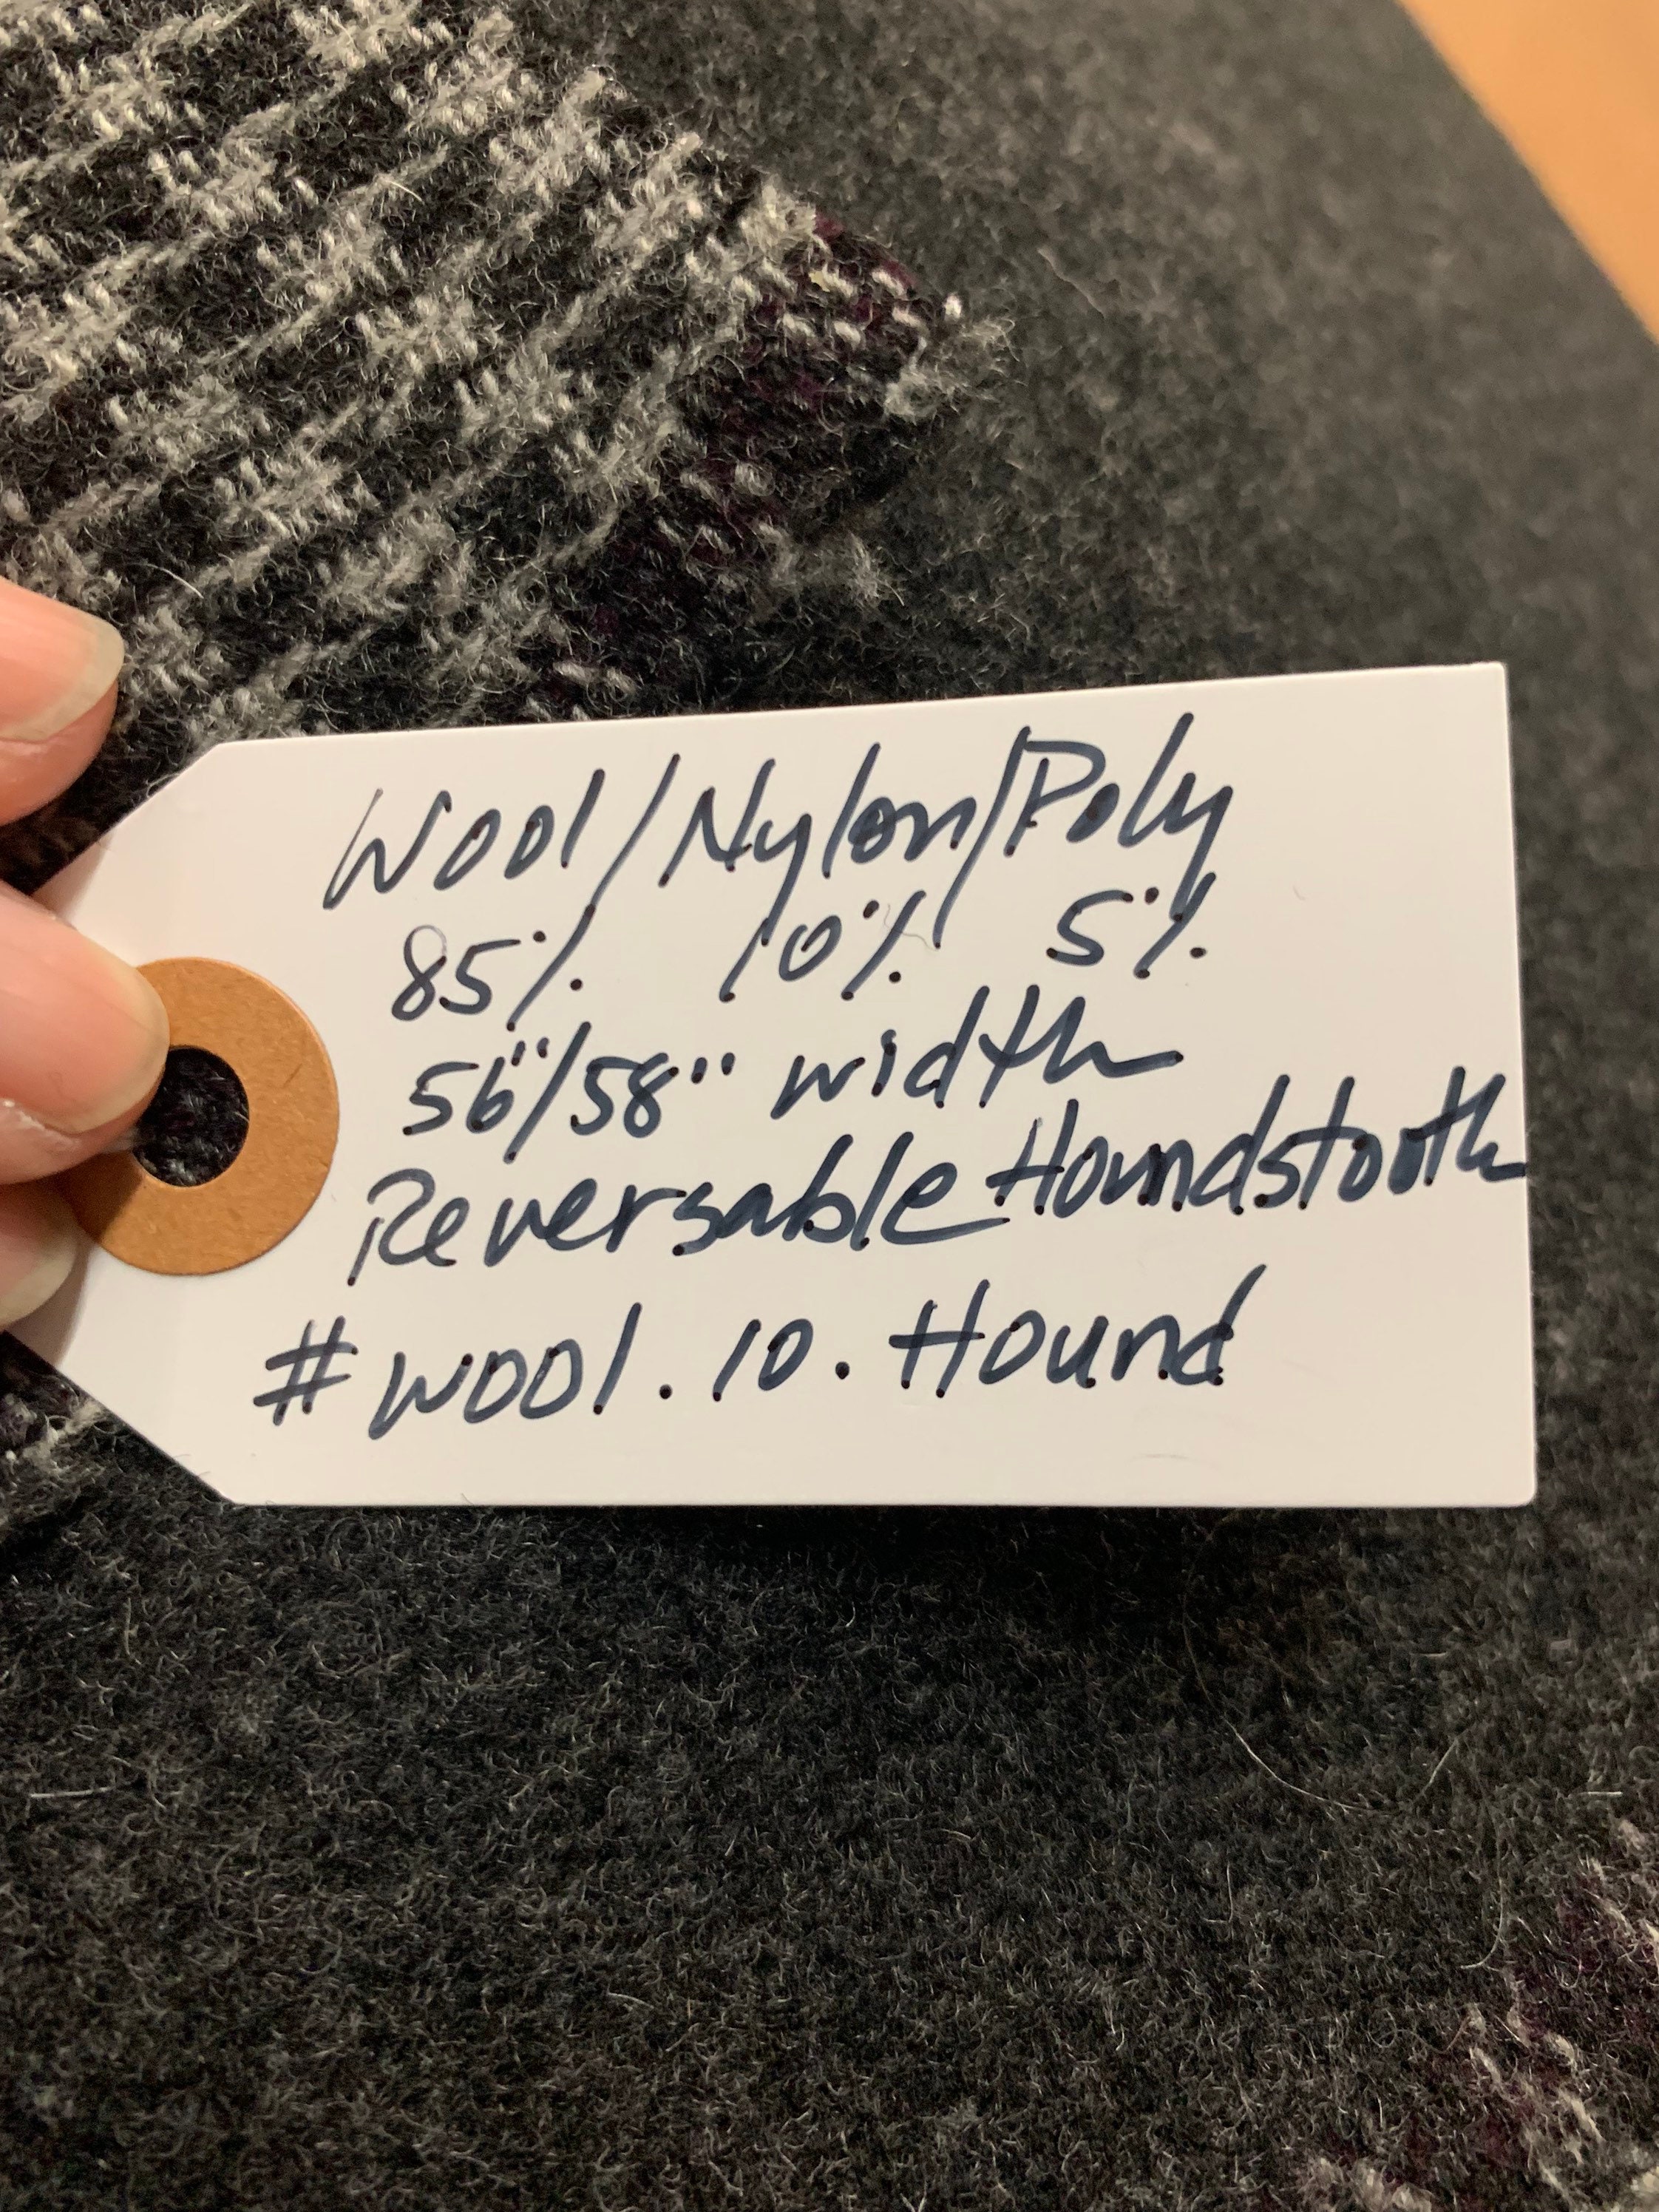 Wool/Nylon/Poly
85% 10% 5%
56"/58" width
Reversable Houndstooth
#wool.10.Hound